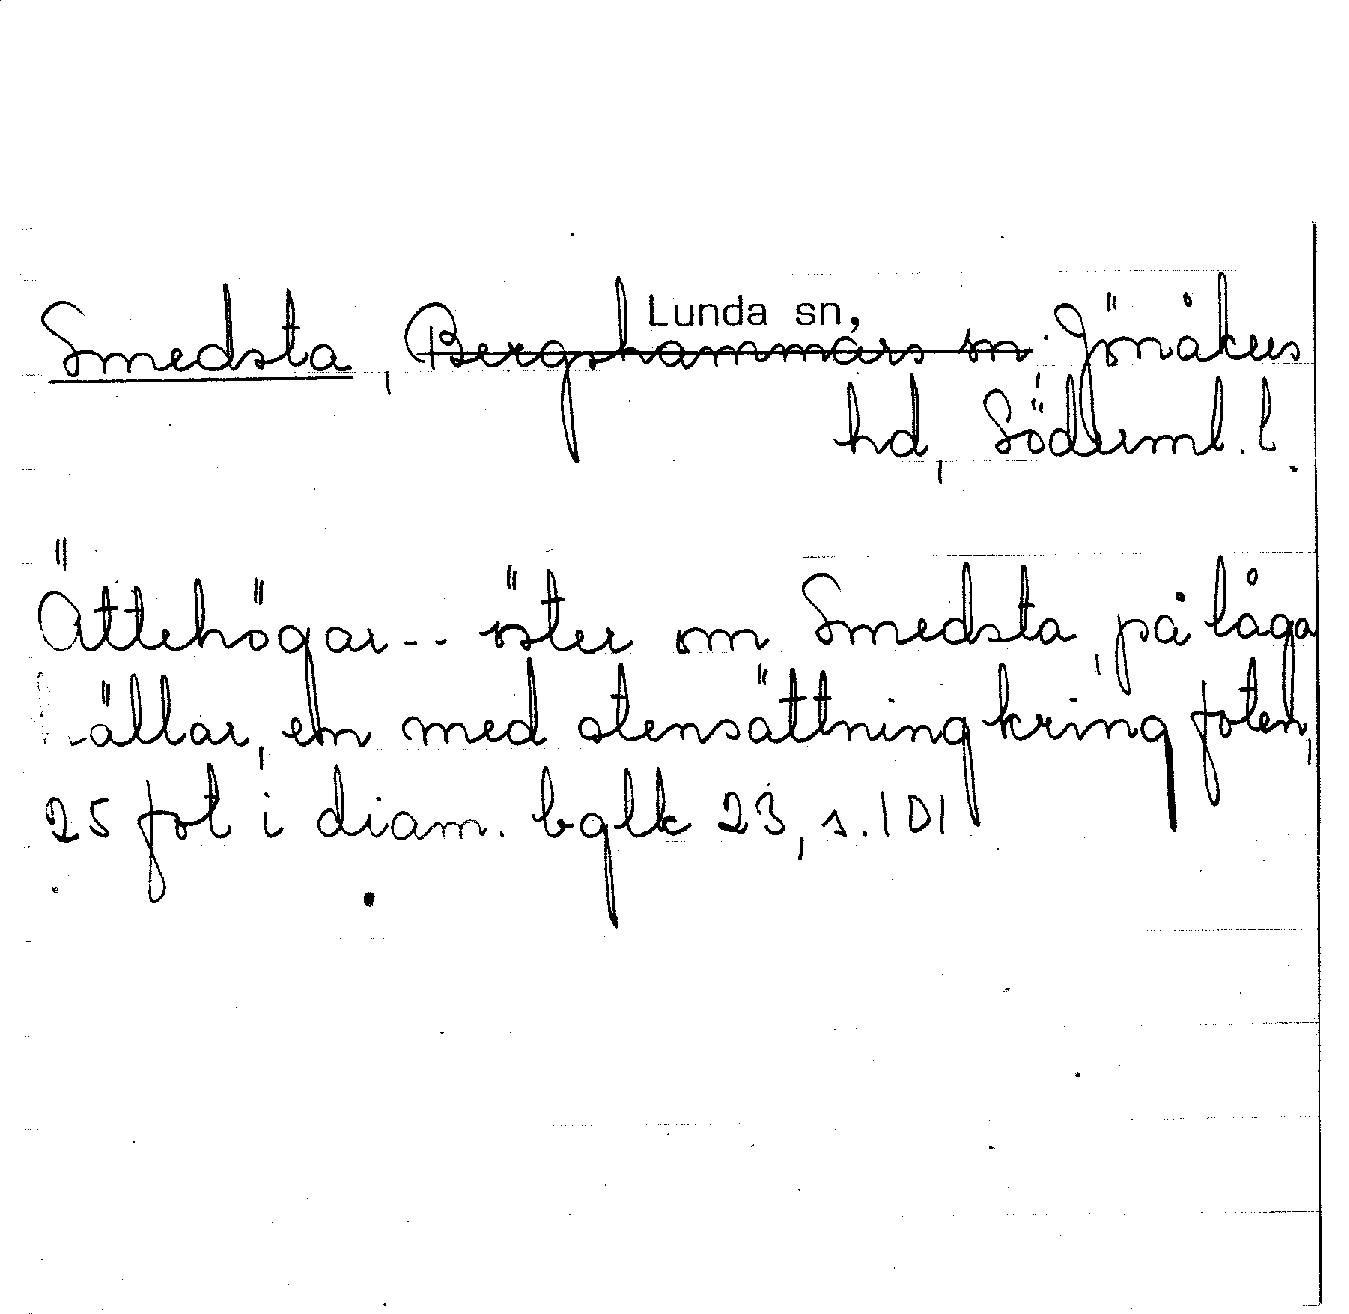 Lunda sn,
Smedsta, Bergshammars sn Jönåkers
hd, Söderml. l.
Ättehögar -- öster om Smedsta, på låga
hällar, en med stensättning kring foten,
25 fot i diam. bglk 23, s. 101